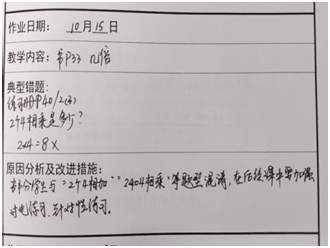 作业日期： 10月15日
教学内容： 书P33 几倍
典型错题：
练习册P40/2(3)
2个4相乘是多少？
2×4=8 ×
原因分析及改进措施：
部分学生与“2个4相加”“2和4相乘”等题型混淆，在后续课中要加强
对比练习、针对性练习。